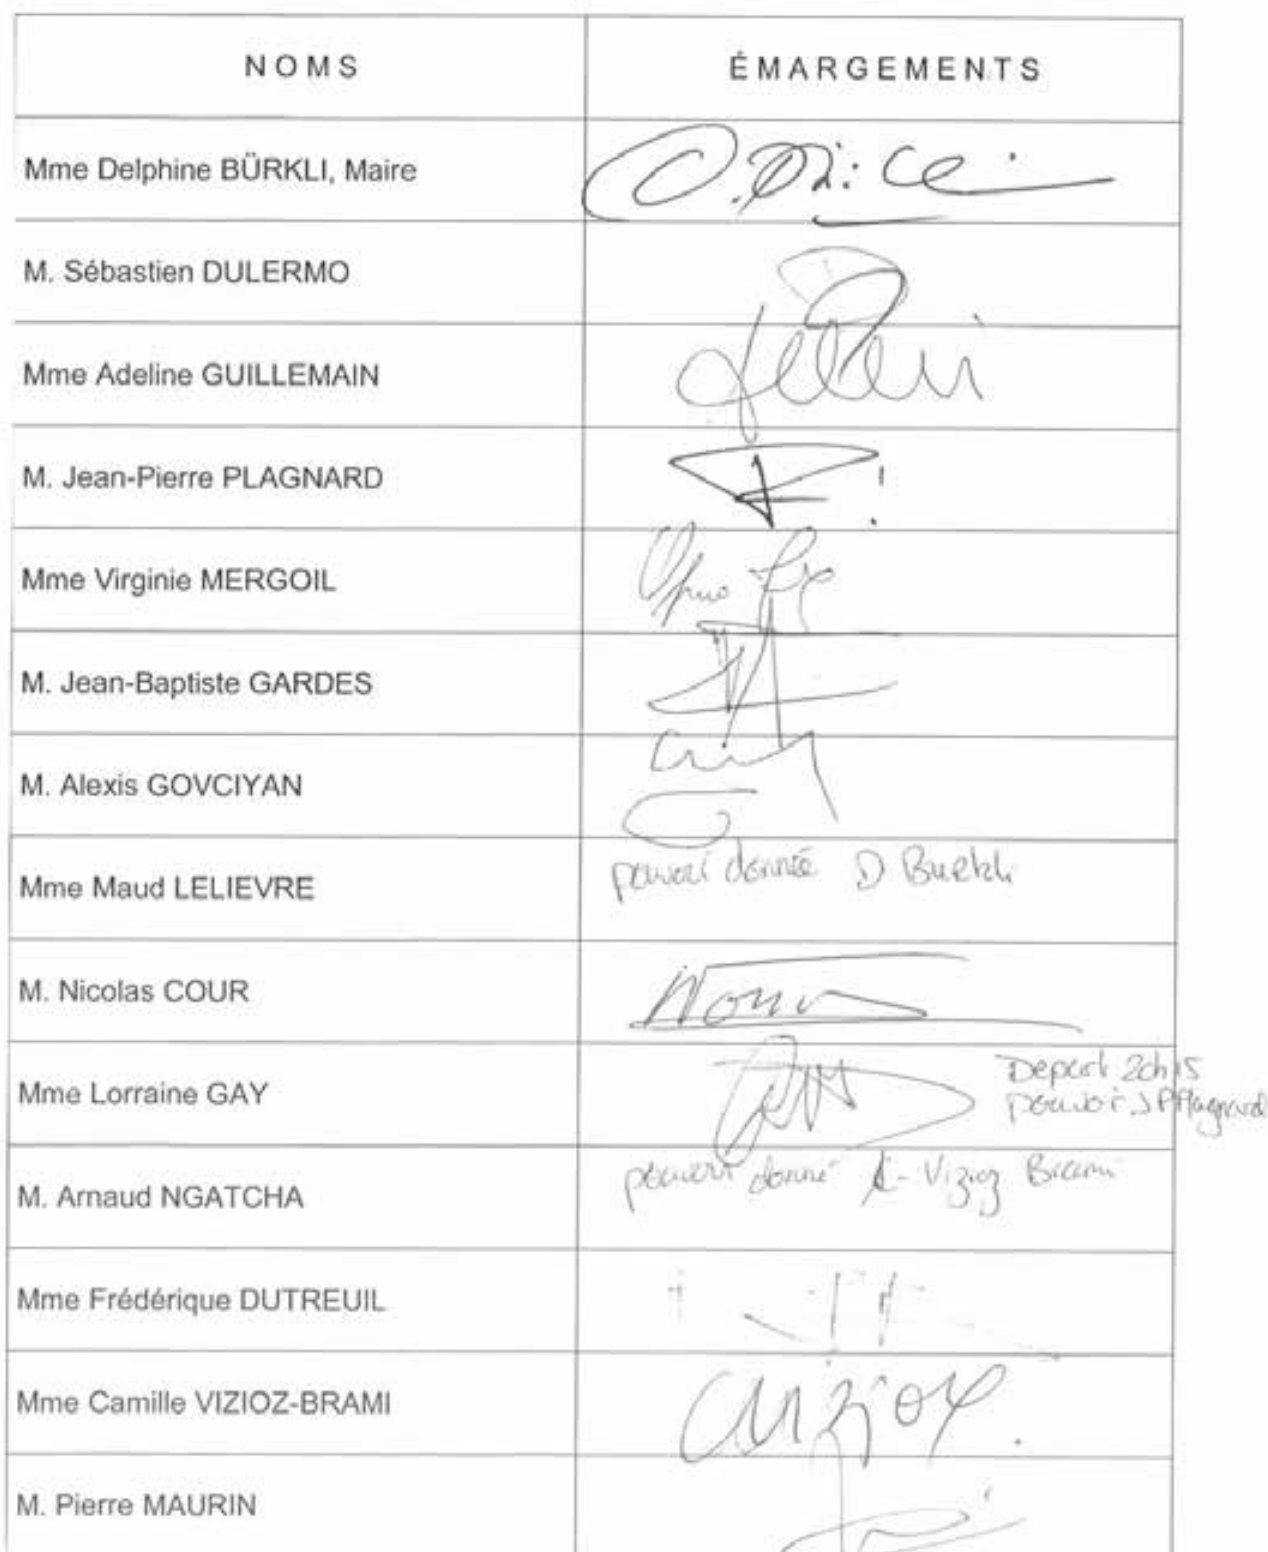 NOMS ÉMARGEMENTS
Mme Delphine BÜRKLI, Maire
M. Sébastien DULERMO
Mme Adeline GUILLEMAIN
M. Jean-Pierre PLAGNARD
Mme Virginie MERGOIL
M. Jean-Baptiste GARDES
M. Alexis GOVCIYAN
Mme Maud LELIEVRE pouvoir donnée D Burkli
M. Nicolas COUR
Mme Lorraine GAY Depart 20h15
pouvoir JP Plagnard
M. Arnaud NGATCHA pouvoir donné C- Vizioz Brami
Mme Frédérique DUTREUIL
Mme Camille VIZIOZ-BRAMI
M. Pierre MAURIN